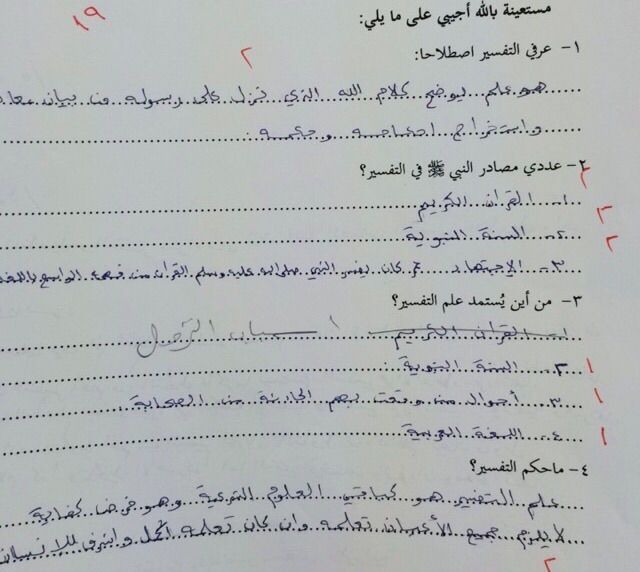 مستعينة بالله أجيبي على ما يلي:
١٩
١- عرفي التفسير اصطلاحا:
٢
هو علم يوضح كلام الله الذي نزل على رسوله من بيان معا
واستخراج احكامه وحكمه.
٢- عددي مصادر النبي ﷺ في التفسير؟
٢
١- القرآن الكريم
٢
٢- السنة النبوية
٢
٣- الاجتهاد كان يفسر النبي صلى الله عليه وسلم القرآن من فهمه الواسع باللغة
٣- من أين يُستمد علم التفسير؟
١- القرآن الكريم ١ اسباب النزول
٢- السنة النبوية
١
٣- أحوال من وقعت بهم الحادثة من الصحابة
١
٤- اللغة العربية
١
٤- ماحكم التفسير؟
علم التفسير هو كباقي العلوم الشرعية وهو فرض كفاية
لا يلزم جميع الأعيان تعلمه وان كان تعلمه أكمل واشرف للإنسان
٢